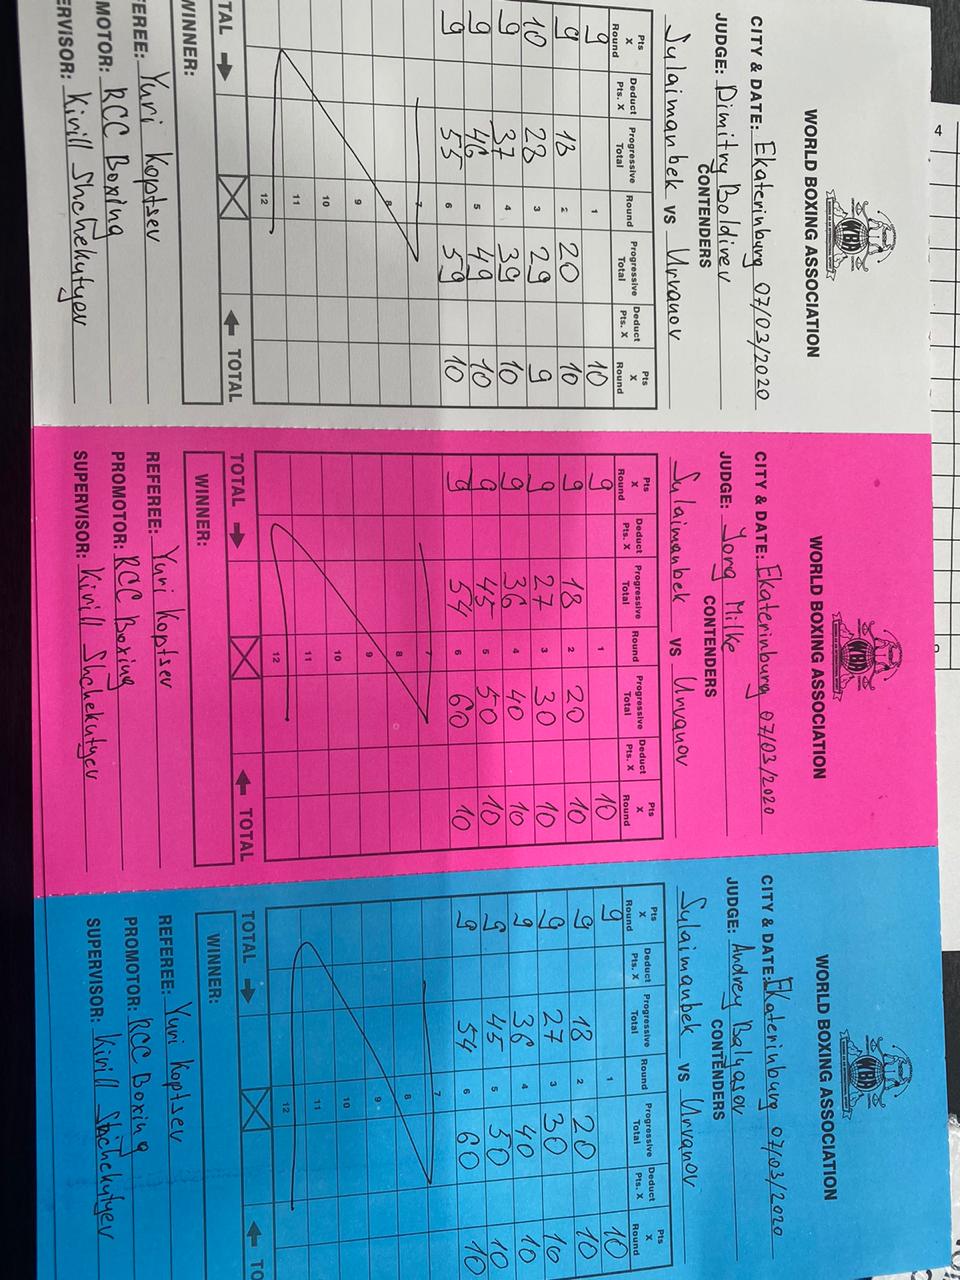 WORLD BOXING ASSOCIATION
WBA
CITY & DATE: Ekaterinburg 07/03/2020
JUDGE: Dimitry Boldirev
CONTENDERS
Sulaimanbek VS Urvanov
Pts X Round Deduct Pts. X Progressive Total Round Progressive Total Deduct Pts. X Pts X Round
9 1 10
9 18 2 20 10
10 28 3 29 9
9 37 4 39 10
9 46 5 49 10
9 55 6 59 10
7
8
9
10
11
12
TAL TOTAL
WINNER:
FEREE: Yuri Koptsev
MOTOR: RCC Boxing
ERVISOR: Kirill Shchekutyev
WORLD BOXING ASSOCIATION
WBA
CITY & DATE: Ekaterinburg 07/03/2020
JUDGE: Yorg Milke
CONTENDERS
Sulaimanbek VS Urvanov
Pts X Round Deduct Pts. X Progressive Total Round Progressive Total Deduct Pts. X Pts X Round
9 1 10
9 18 2 20 10
9 27 3 30 10
9 36 4 40 10
9 45 5 50 10
9 54 6 60 10
7
8
9
10
11
12
TOTAL TOTAL
WINNER:
REFEREE: Yuri Koptsev
PROMOTOR: RCC Boxing
SUPERVISOR: Kirill Shchekutyev
WORLD BOXING ASSOCIATION
WBA
CITY & DATE: Ekaterinburg 07/03/2020
JUDGE: Andrey Balyasov
CONTENDERS
Sulaimanbek VS Urvanov
Pts X Round Deduct Pts. X Progressive Total Round Progressive Total Deduct Pts. X Pts X Round
9 1 10
9 18 2 20 10
9 27 3 30 10
9 36 4 40 10
9 45 5 50 10
9 54 6 60 10
7
8
9
10
11
12
TOTAL TO
WINNER:
REFEREE: Yuri Koptsev
PROMOTOR: RCC Boxing
SUPERVISOR: Kirill Shchekutyev
4